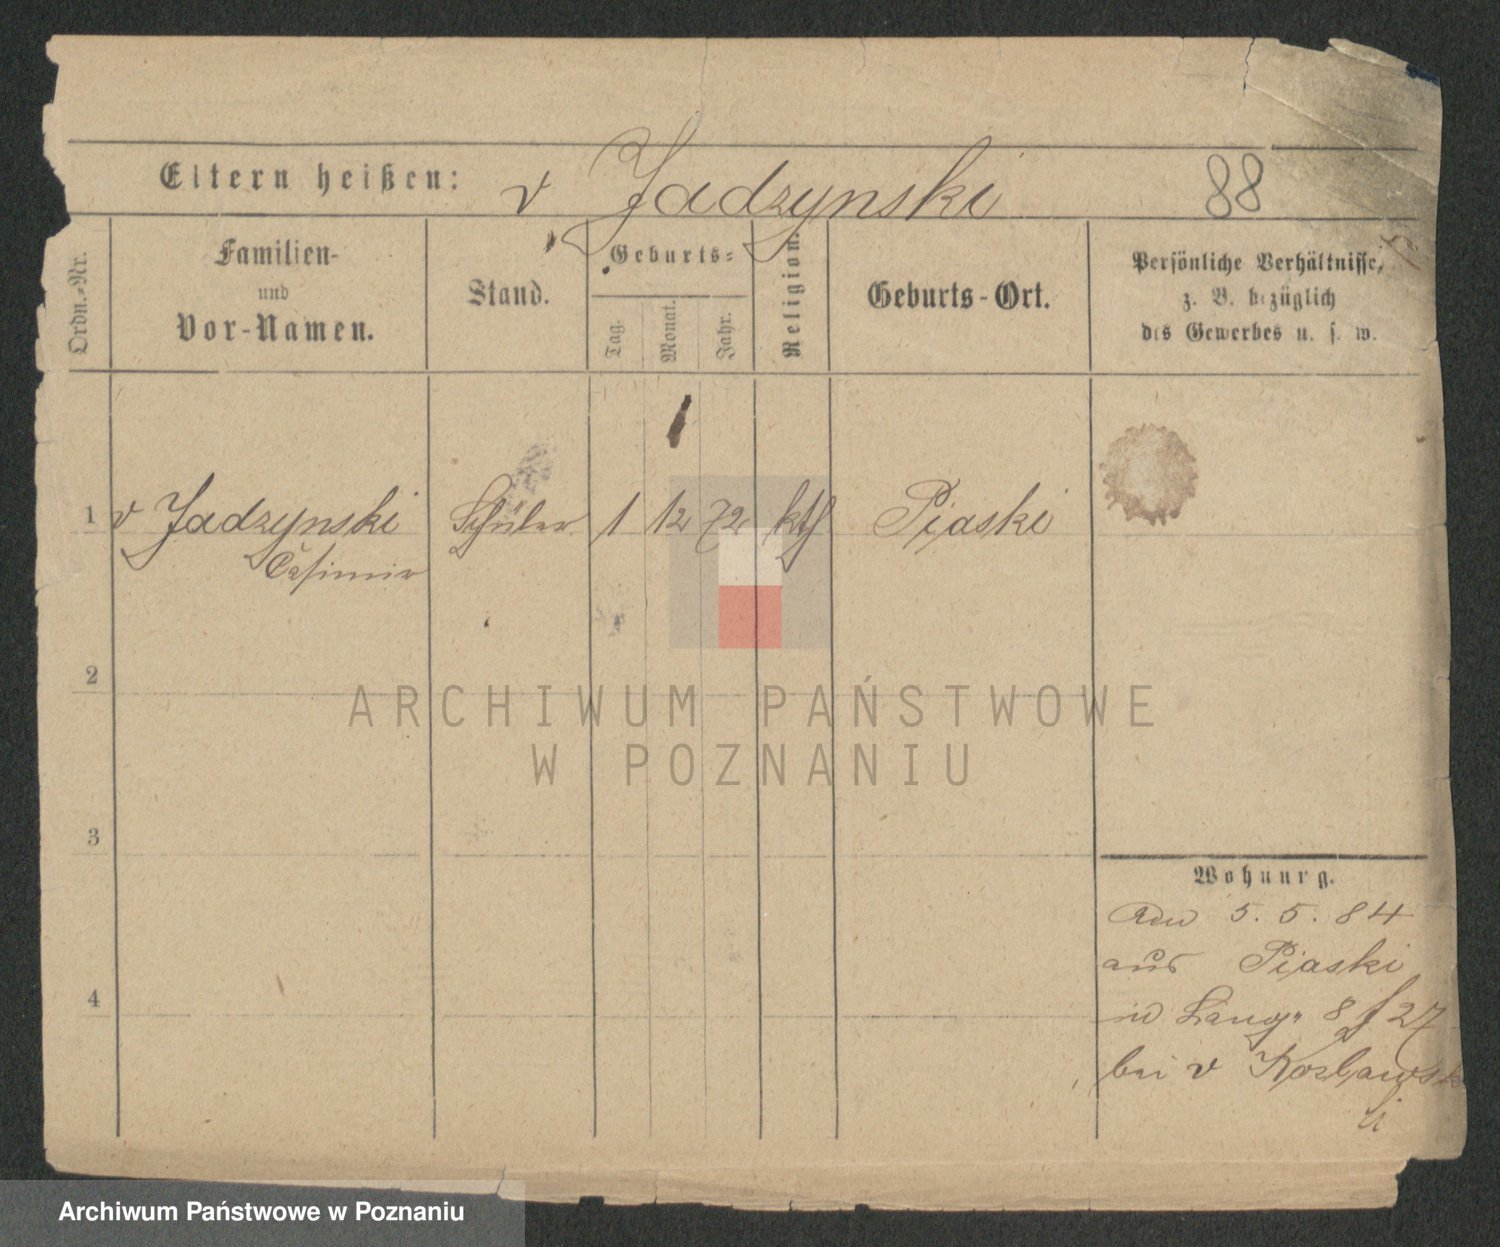 Eltern heißen: v Jadzynski 88
Ordn.-Nr.
Familien-
und
Vor-Namen.
Stand.
Geburts-
Tag. Monat. Jahr.
Religion.
Geburts-Ort.
Persönliche Verhältnisse,
z. B. bezüglich
des Gewerbes u. s. w.
1 v Jadzynski Schüler 1 12 72 kth Piaski
Casimir
2
3
4
Wohnung.
5. 5. 84
aus Piaski
8 27
bei v Kozlowski
ARCHIWUM PAŃSTWOWE
W POZNANIU
Archiwum Państwowe w Poznaniu